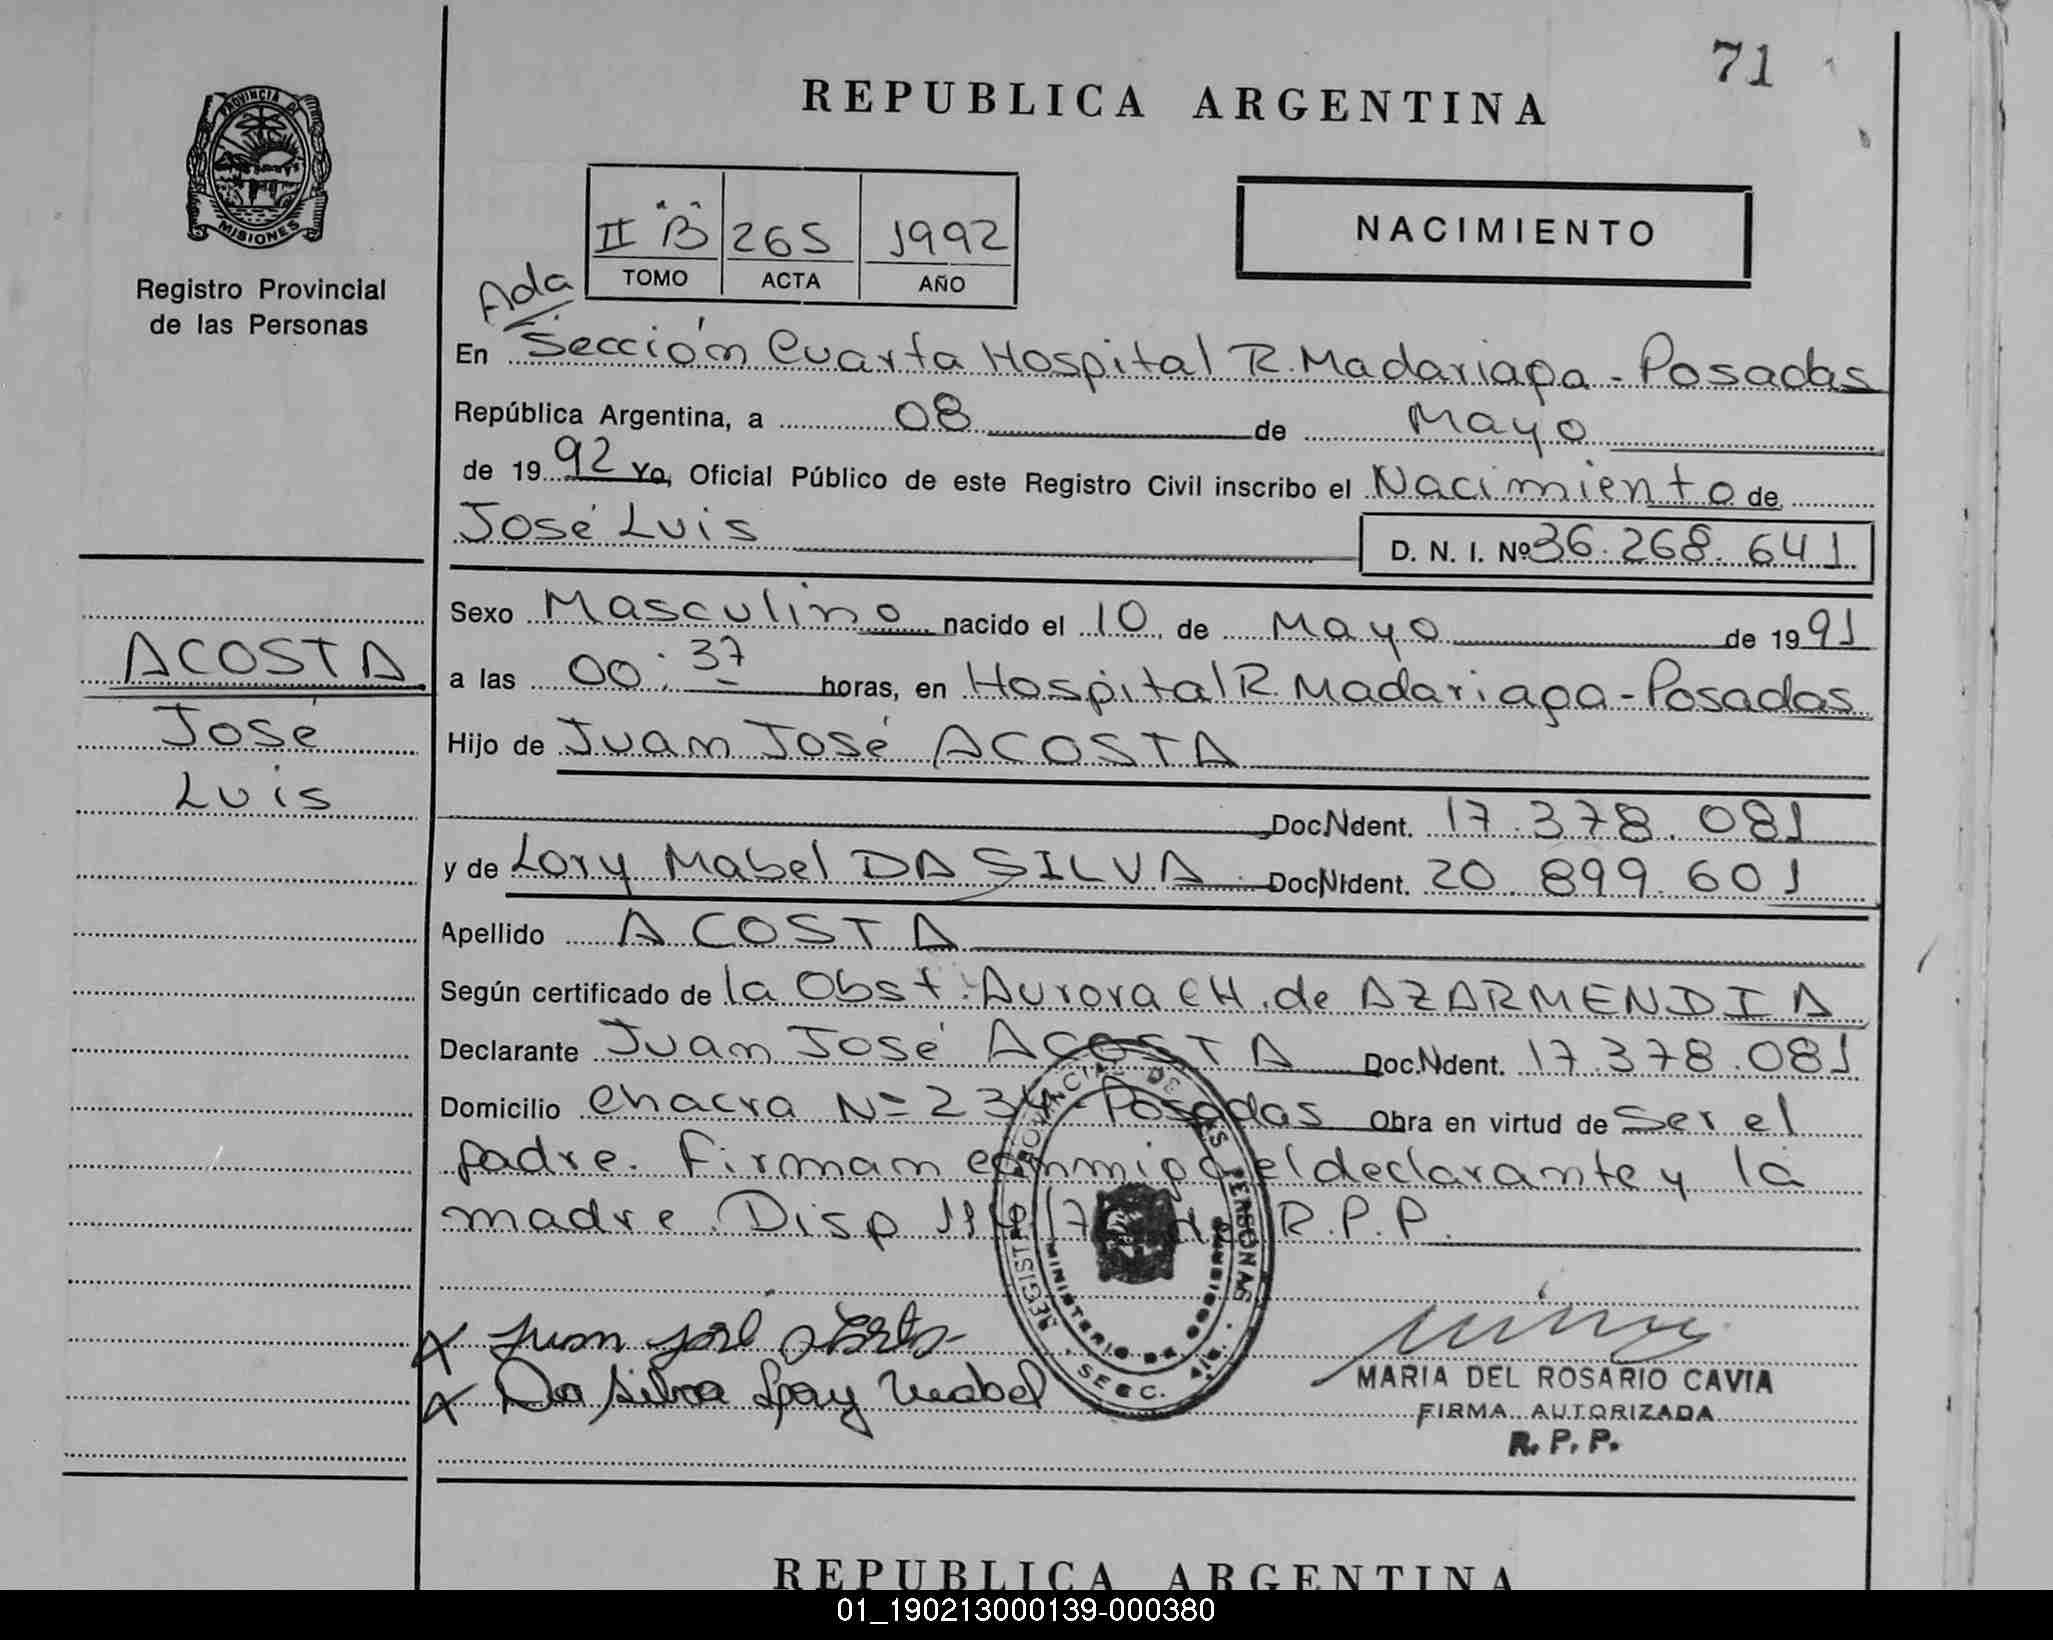 71
REPUBLICA ARGENTINA
PROVINCIA DE
MISIONES
Registro Provincial
de las Personas
II "B" 265 1992
TOMO ACTA AÑO
NACIMIENTO
Ada
En Sección Cuarta Hospital R. Madariaga - Posadas
República Argentina, a 08 de Mayo
de 1992 Yo, Oficial Público de este Registro Civil inscribo el Nacimiento de
José Luis D. N. I. Nº 36.268.641
Sexo Masculino nacido el 10 de Mayo de 1991
ACOSTA
José
Luis
a las 00:37 horas, en Hospital R. Madariaga - Posadas
Hijo de Juan José ACOSTA
Doc.Nident. 17.378.081
y de Lory Mabel DA SILVA Doc.Nident. 20.899.601
Apellido ACOSTA
Según certificado de la Obst. Aurora CH. de AZARMENDIA
Declarante Juan José ACOSTA Doc.Nident. 17.378.081
Domicilio Chacra Nº 234 - Posadas Obra en virtud de Ser el
padre. Firman conmigo el declarante y la
madre. Disp R.P.P.
REGISTRO PROVINCIAL DE LAS PERSONAS
MINISTERIO DE
SECC.
Juan José Acosta
Da Silva Lory Mabel
MARIA DEL ROSARIO CAVIA
FIRMA AUTORIZADA
R. P. P.
REPUBLICA ARGENTINA
01_190213000139-000380